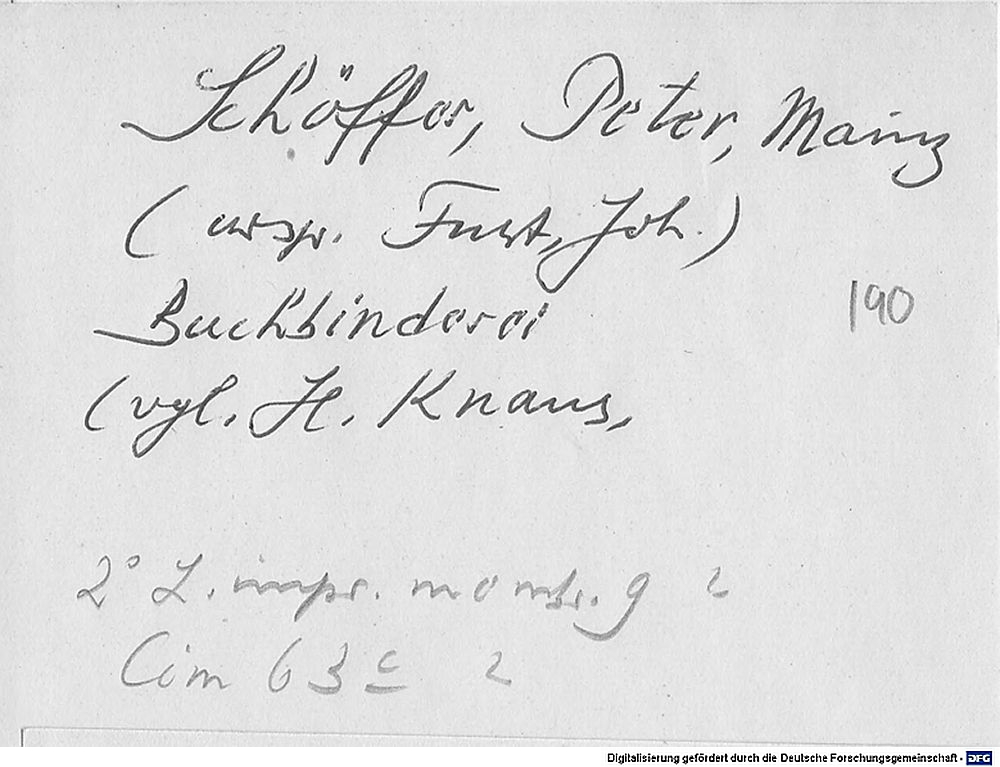 Schöffer, Peter, Mainz
( ursp. Fust, Joh.)
Buchbinderei
190
(vgl. H. Knaus,
2° L. impr. membr. 9 2
Cim 63 c 2
Digitalisierung gefördert durch die Deutsche Forschungsgemeinschaft - DFG